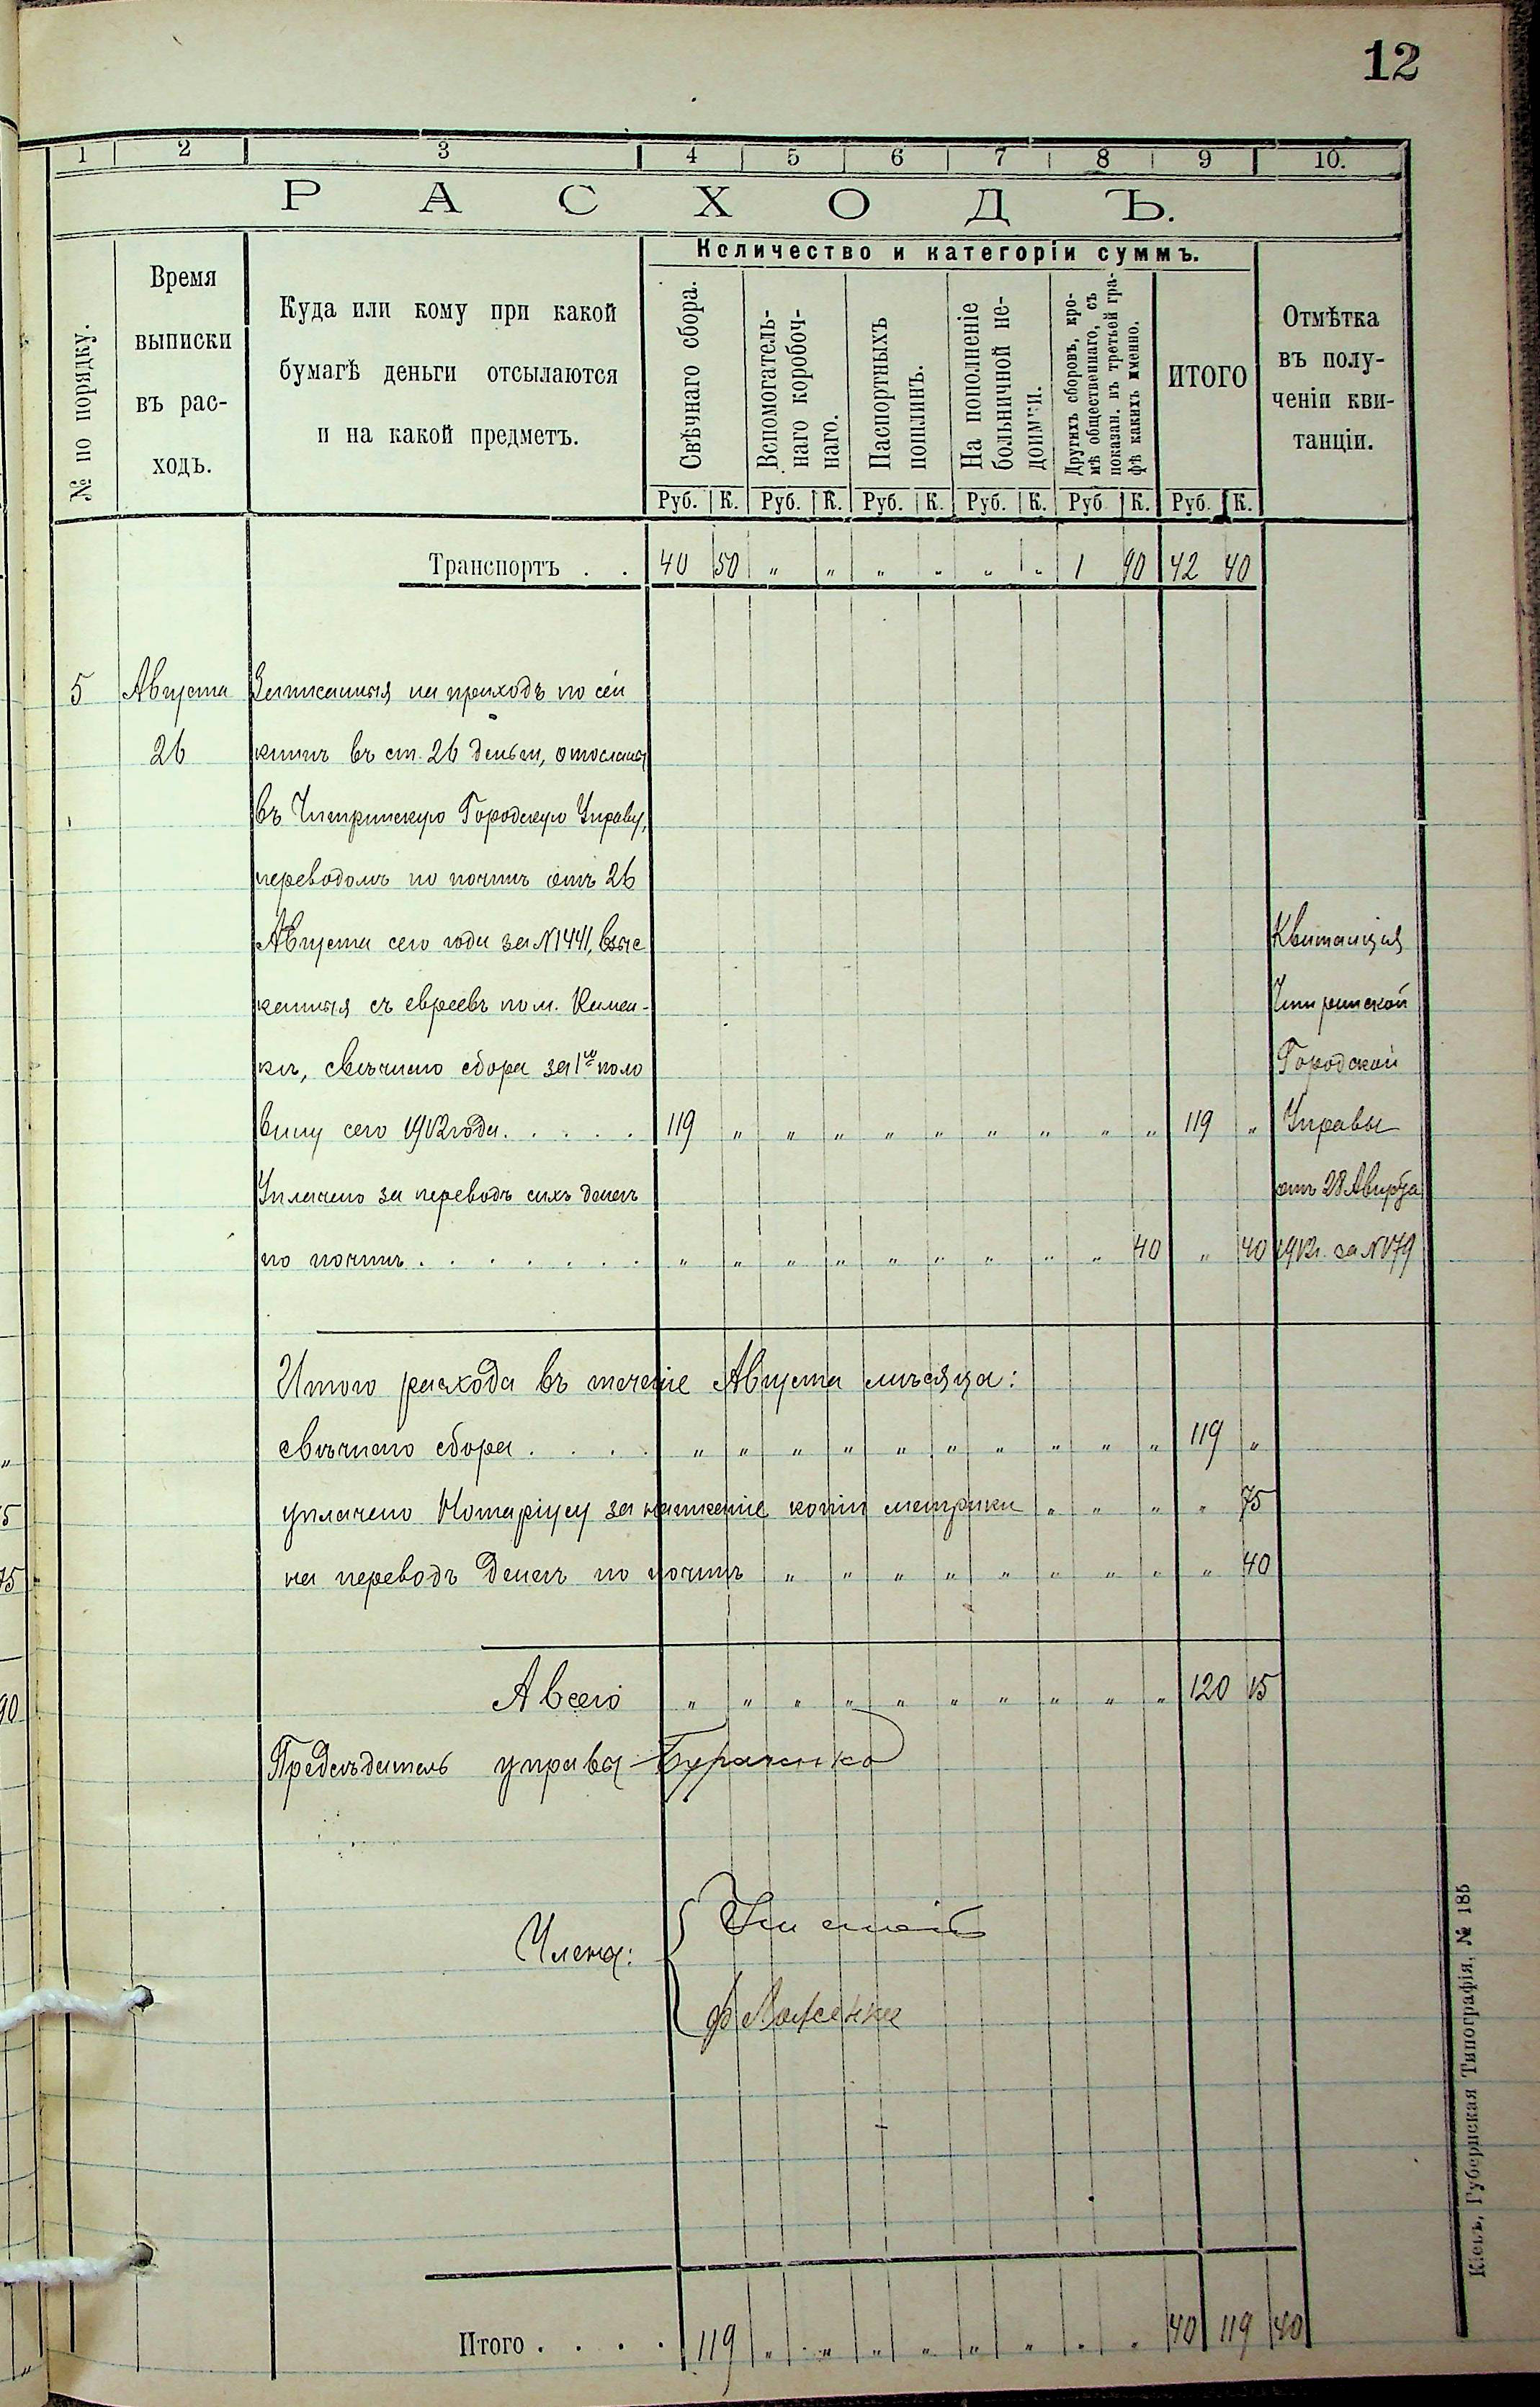 12
1 2 3 4 5 6 7 8 9 10.
РАСХОДЪ.
№ по порядку.
Время
выписки
въ рас-
ходъ.
Куда или кому при какой
бумагѣ деньги отсылаются
и на какой предметъ.
Количество и категоріи суммъ.
Свѣчнаго сбора.
Вспомогатель-
наго коробоч-
наго.
Паспортныхъ
пошлинъ.
На пополненіе
больничной не-
доимки.
Другихъ сборовъ, кро-
мѣ общественнаго, съ
показан. въ третьей гра-
фѣ какихъ именно.
ИТОГО
Отмѣтка
въ полу-
ченіи кви-
танціи.
Руб. К. Руб. К. Руб. К. Руб. К. Руб К. Руб. К.
Транспортъ . . 40 50 „ „ „ „ „ „ 1 90 42 40
5 Августа Записанныя на приходъ по сей
26 книгѣ въ ст. 26 деньги, отосланы
въ Чигиринскую Городскую Управу,
переводомъ по почтѣ отъ 26
Августа сего года за № 1441, взыс
канныя съ евреевъ по м. Камен-
кѣ, свѣчнаго сбора за 1ую поло
вину сего 1912 года. . . . . 119 „ „ „ „ „ „ „ „ „ 119 „
Уплачено за переводъ сихъ денегъ
по почтѣ . . . . . . . „ „ „ „ „ „ „ „ „ 40 „ 40
Квитанція
Чигиринской
Городской
Управы
отъ 28 Августа
1912г. за № 179
Итого расхода въ теченіе Августа мѣсяца:
свѣчнаго сбора . . . . „ „ „ „ „ „ „ „ „ „ 119 „
уплачено Нотаріусу за копіи метрики „ „ „ „ 75
на переводъ денегъ по почтѣ „ „ „ „ „ „ „ „ „ 40
А всего „ „ „ „ „ „ „ „ „ „ 120 15
Предсѣдатель управы
Члены:
Итого . . . . 119 „ „ „ „ „ „ „ „ 40 119 40
Кіевъ, Губернская Типографія, № 185